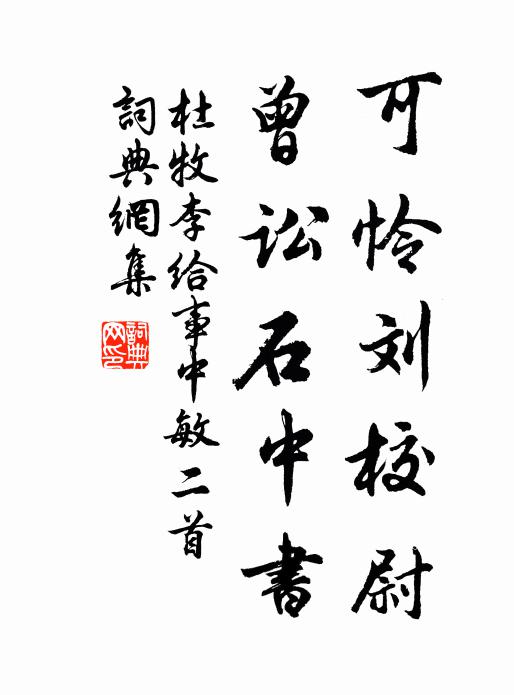 可怜刘校尉
曾讼石中書
杜牧李给事中敏二首
詞典網集
詞典網印